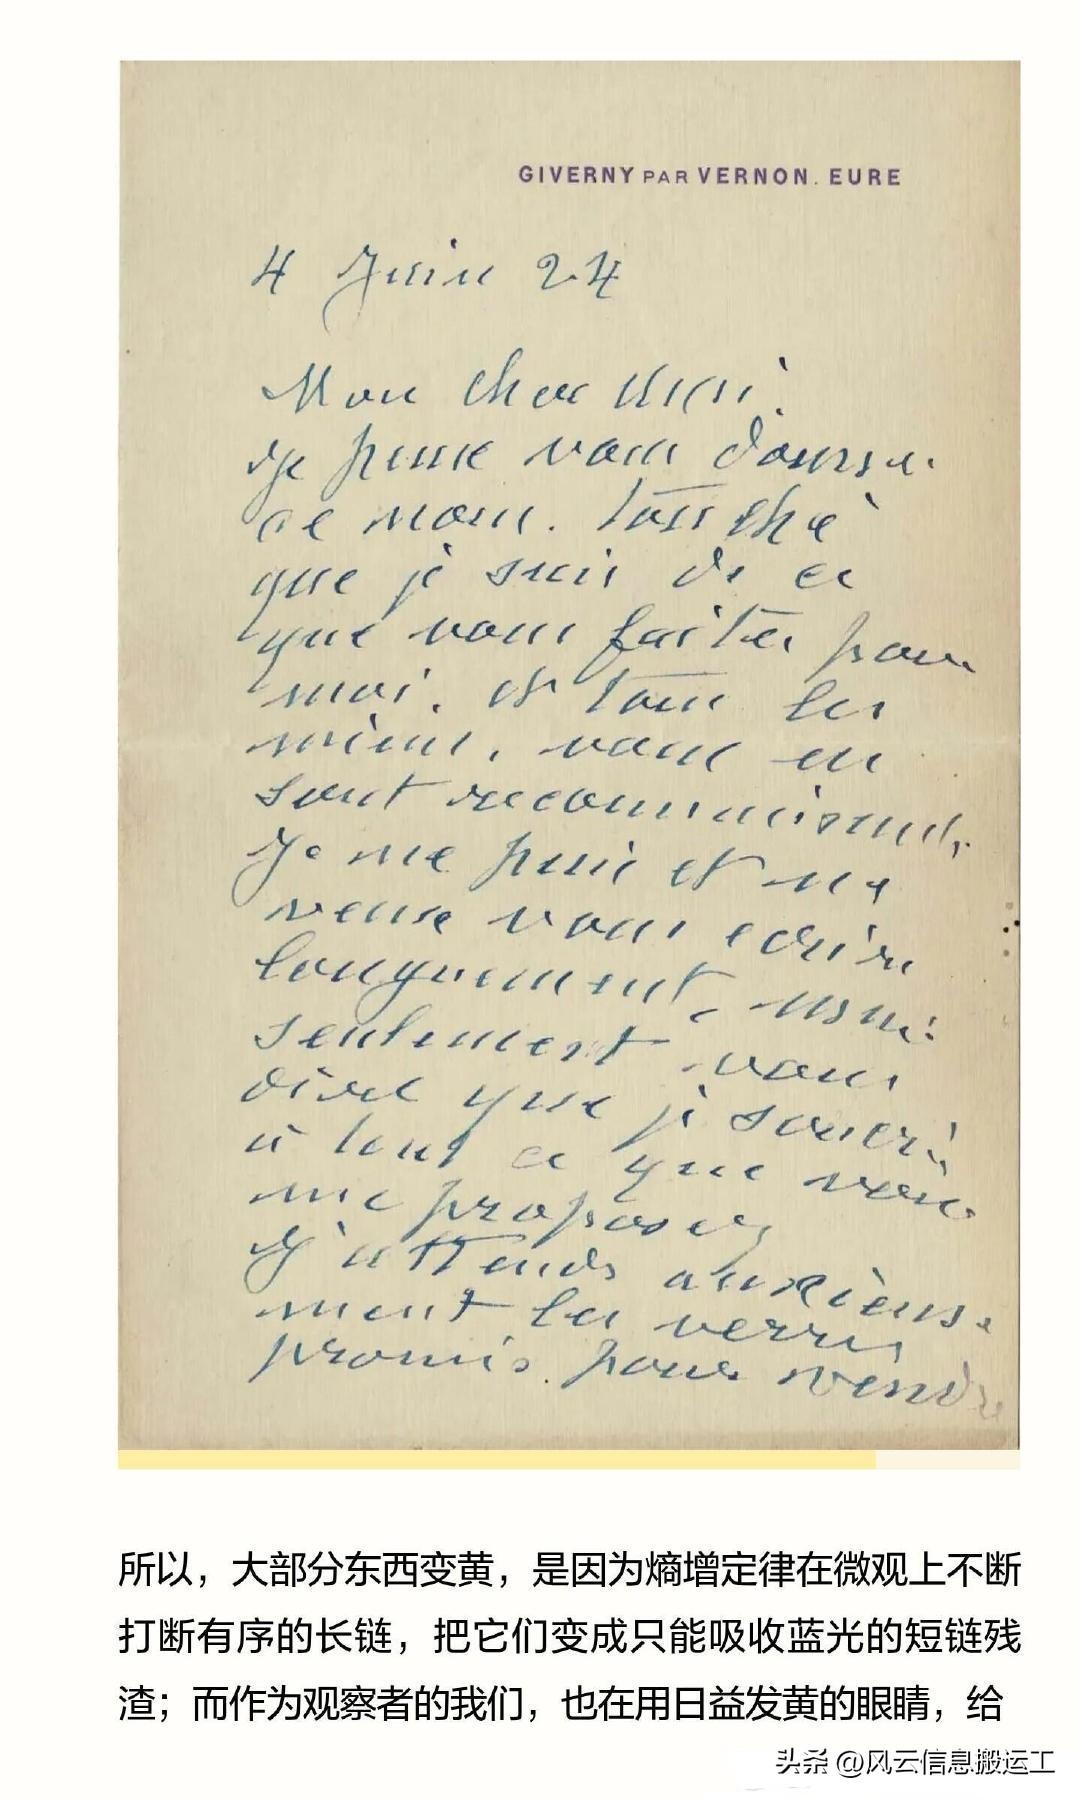 GIVERNY PAR VERNON. EURE
4 Juin 24
Mon cher ami.
je peux vous donner
ce nom. touché
que je suis de ce
que vous faites pour
moi. et tous les
miens, vous en
sont reconnaissants.
Je ne puis et ne
veux vous écrire
longuement,
seulement vous
dire que je souscris
à tout ce que vous
me proposez
J'attends anxieuse
ment les verres
promis. pour vendre
所以，大部分东西变黄，是因为熵增定律在微观上不断
打断有序的长链，把它们变成只能吸收蓝光的短链残
渣；而作为观察者的我们，也在用日益发黄的眼睛，给
头条 @风云信息搬运工